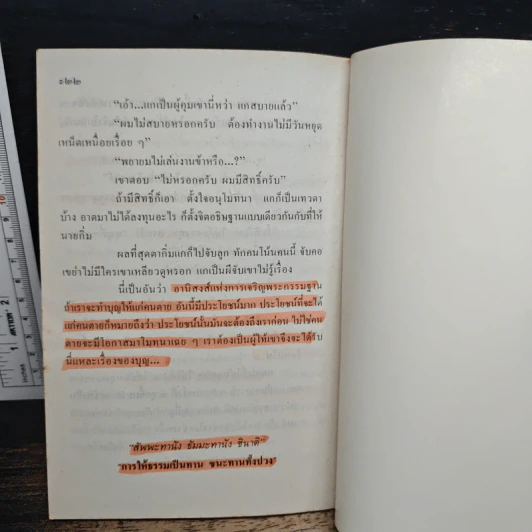 ๑๒๒
"เอ้า...แกเป็นผู้คุมเขานี่หว่า แกสบายแล้ว"
"ผมไม่สบายหรอกครับ ต้องทำงานไม่มีวันหยุด
เหน็ดเหนื่อยเรื่อย ๆ"
"พยายมไม่เล่นงานข้าหรือ...?"
เขาตอบ "ไม่หรอกครับ ผมมีสิทธิ์ครับ"
ถ้ามีสิทธิ์ก็เอา ตั้งใจอนุโมทนา แกก็เป็นเทวดา
บ้าง อาตมาไม่ได้ลงทุนอะไร ก็ตั้งจิตอธิษฐานแบบเดียวกันกับที่ให้
นายกิ่ม
ผลที่สุดตากิ่มแกก็ไปจับลูก ทักคนโน้นคนนี้ จับคอ
เขย่าไม่มีใครเขาเหลียวดูหรอก แกเป็นผีจับเขาไม่รู้เรื่อง
นี่เป็นอันว่า อานิสงส์แห่งการเจริญพระกรรมฐาน
ถ้าเราจะทำบุญให้แก่คนตาย อันนี้มีประโยชน์มาก ประโยชน์ที่จะได้
แก่คนตายก็หมายถึงว่า ประโยชน์นั้นมันจะต้องถึงเราก่อน ไม่ใช่คน
ตายจะมีโอกาสมาโมทนาเฉย ๆ เราต้องเป็นผู้ให้เขาจึงจะได้รับ
นี่แหละเรื่องของบุญ...
"สัพพะทานัง ธัมมะทานัง ชินาติ"
"การให้ธรรมเป็นทาน ชนะทานทั้งปวง"